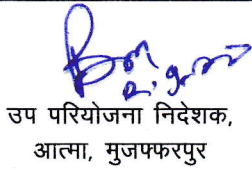 उप परियोजना निदेशक,
आत्मा, मुजफ्फरपुर